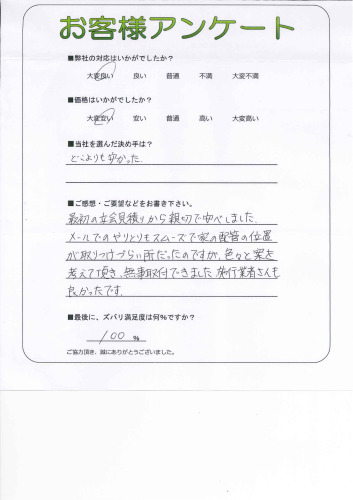 お客様アンケート
■弊社の対応はいかがでしたか?
大変良い 良い 普通 不満 大変不満
■価格はいかがでしたか?
大変安い 安い 普通 高い 大変高い
■当社を選んだ決め手は?
どこよりも安かった
■ご感想・ご要望などをお書き下さい。
最初の立会見積りから親切で安心しました。
メールでのやりとりもスムーズで家の配管の位置
が取りつけづらい所だったのですが、色々と案を
考えて頂き、無事取付できました。施行業者さんも
良かったです。
■最後に、ズバリ満足度は何%ですか?
100 %
ご協力頂き、誠にありがとうございました。